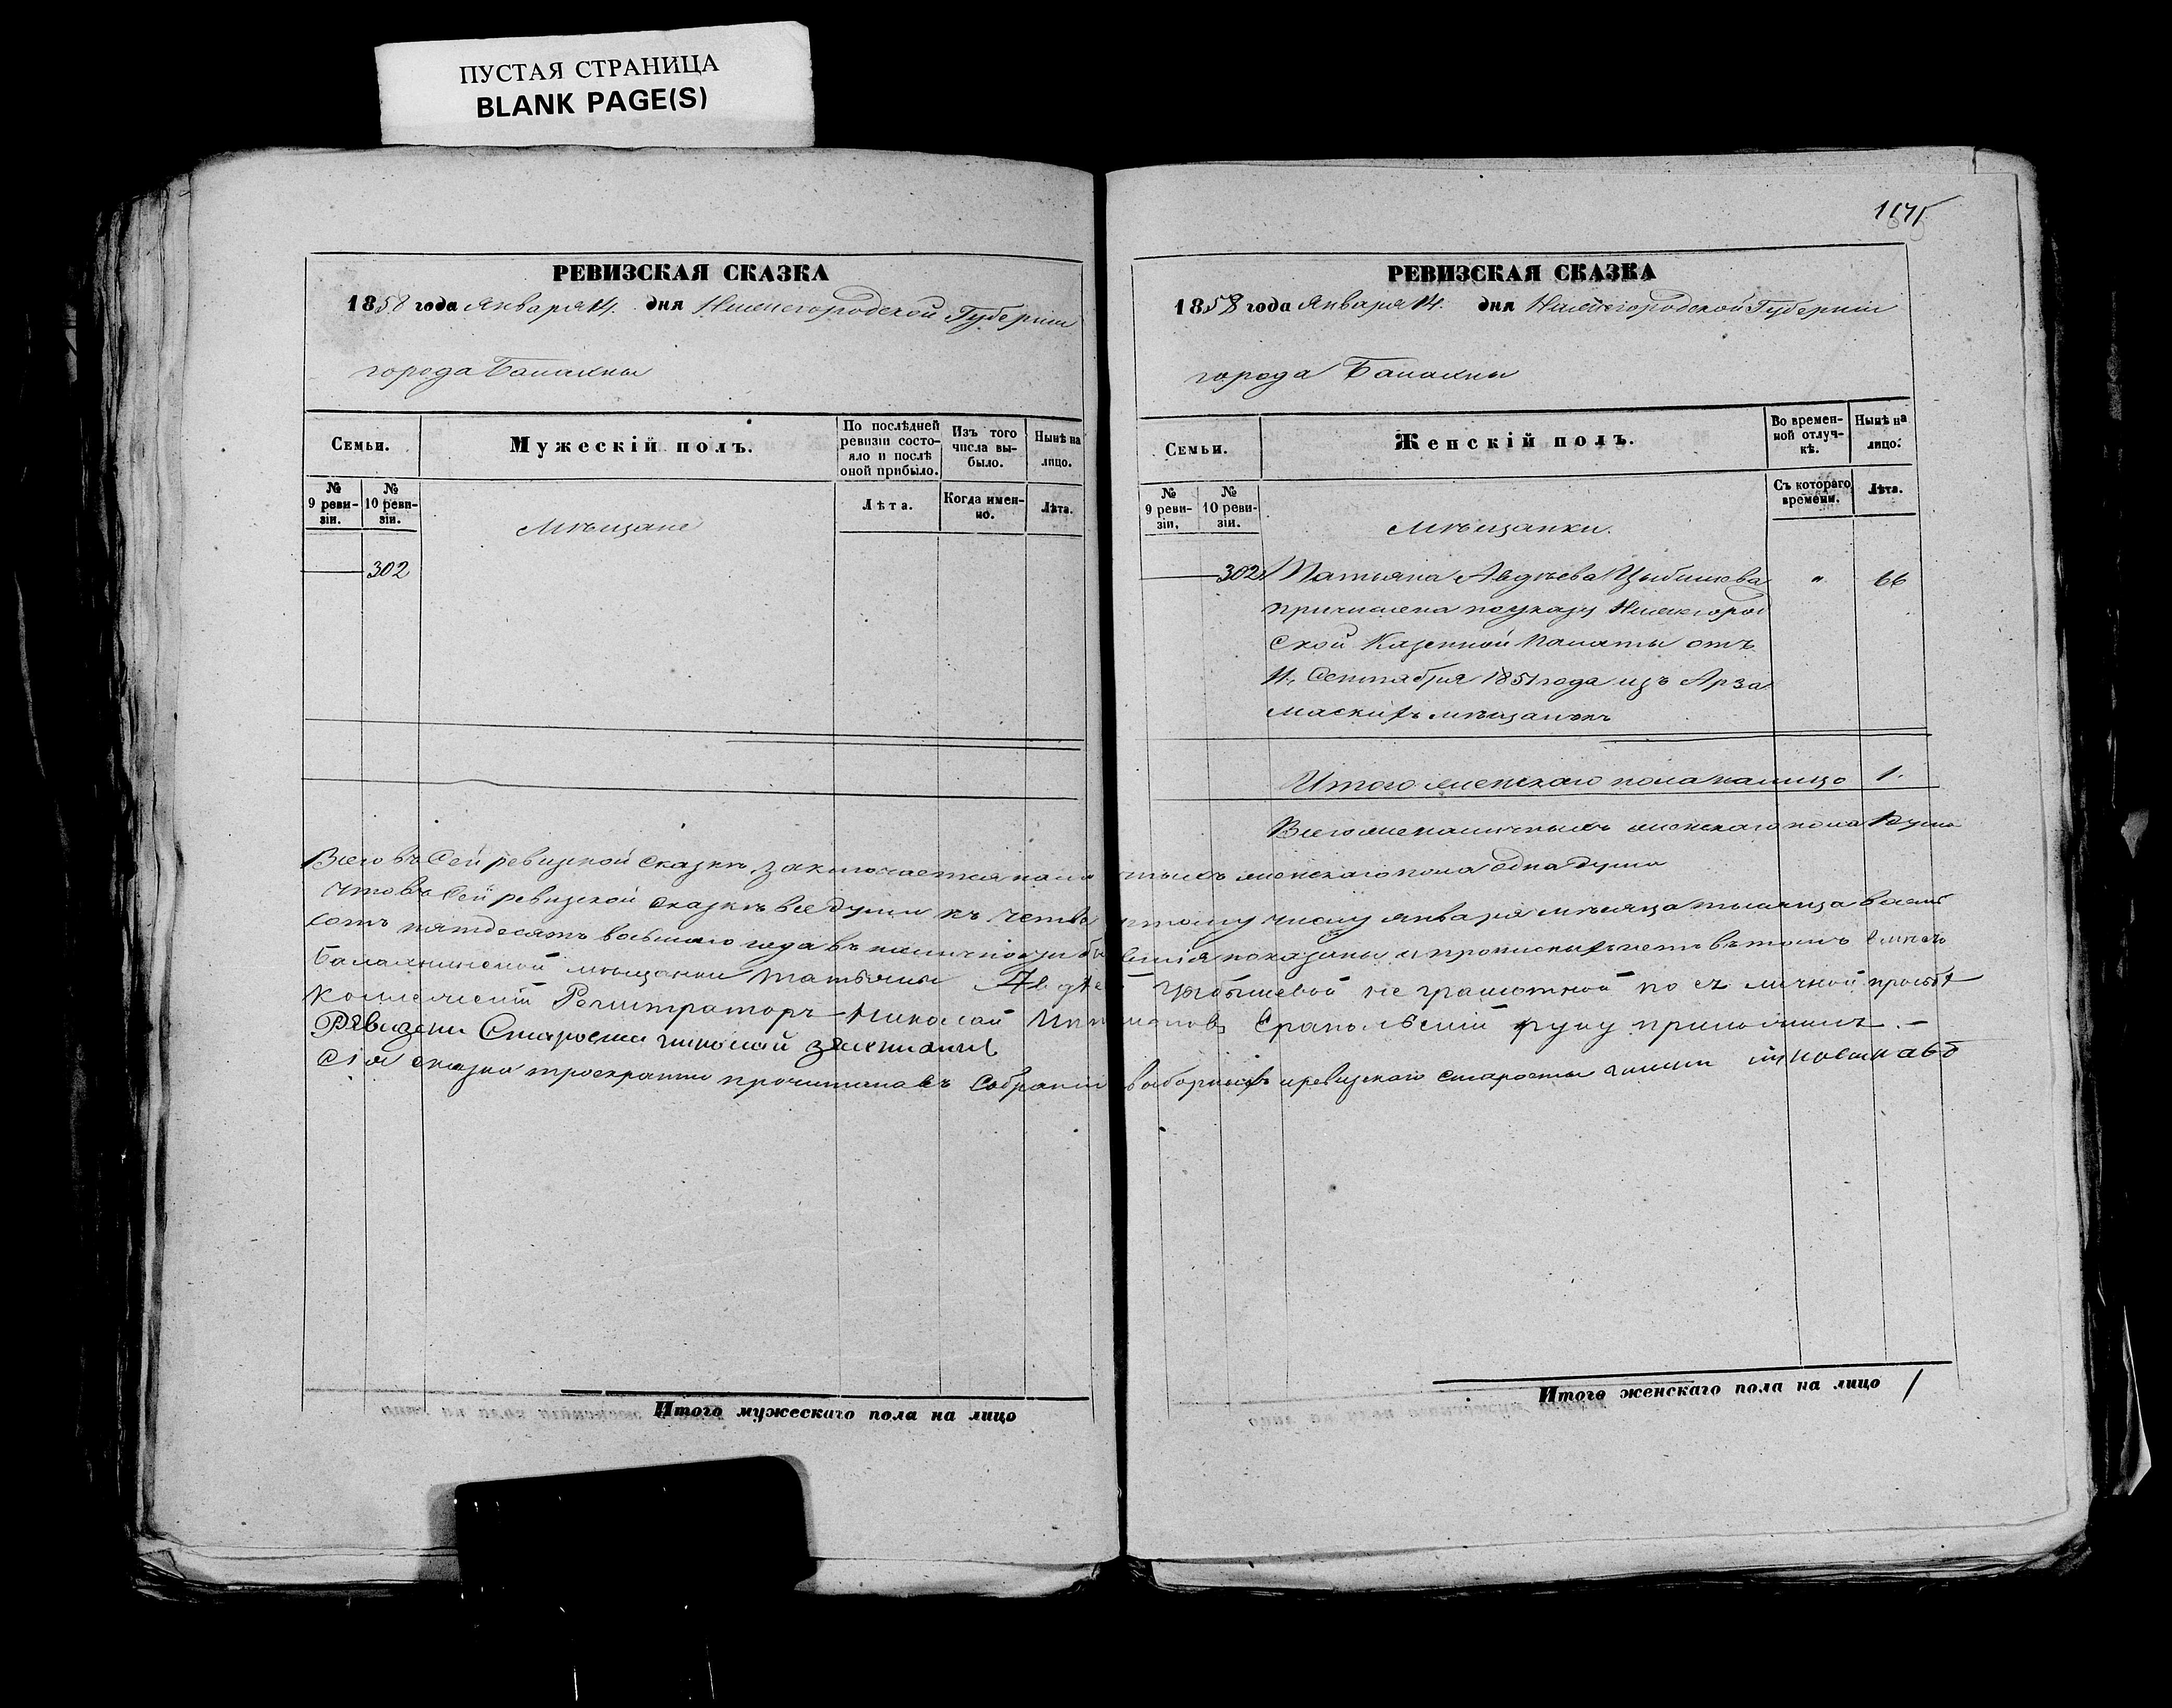 ПУСТАЯ СТРАНИЦА
BLANK PAGE(S)
РЕВИЗСКАЯ СКАЗКА
1858 года Января 14. дня Нижегородской Губерніи
города Балахны
Семьи.
Мужескій полъ.
По послѣдней ревизіи состояло и послѣ оной прибыло.
Изъ того числа выбыло.
Нынѣ на лицо.
№ 9 ревизіи.
№ 10 ревизіи.
Лѣта.
Когда именно.
Лѣта.
Мѣщане
302
РЕВИЗСКАЯ СКАЗКА
1858 года Января 14. дня Нижегородской Губерніи
города Балахны
Семьи.
Женскій полъ.
Во временной отлучкѣ.
Нынѣ на лицо.
№ 9 ревизіи.
№ 10 ревизіи.
Съ котораго времени.
Лѣта.
Мѣщанки.
302 Татьяна Авдѣева Цыбышева " 66
причислена по указу Нижегород
ской Казенной Палаты отъ
Сентября 1851 года изъ Арза
маскихъ мѣщанокъ
Итого женскаго пола налицо 1.
Всего наличныхъ женскаго пола 1 душа
Всего въ сей ревизской сказкѣ заключается наличныхъ женскаго пола одна душа
Что въ сей ревизской сказкѣ все души къ четвертому числу января мѣсяца тысяща восемь
сотъ пятдесятъ восьмаго года въ наличности бы показаны и прописныхъ нетъ въ томъ
Балахнинской мѣщанки Татьяны Авдѣевой Цыбышевой не грамотной по ея личной просьбѣ
Коллежскій Регистраторъ Николай Серапольскій руку приложилъ.-
Ревизски Староста николай
Сія сказка троекратно прочитана въ собраніи выборныхъ и ревизскаго старосты
Итого мужескаго пола на лицо
Итого женскаго пола на лицо 1